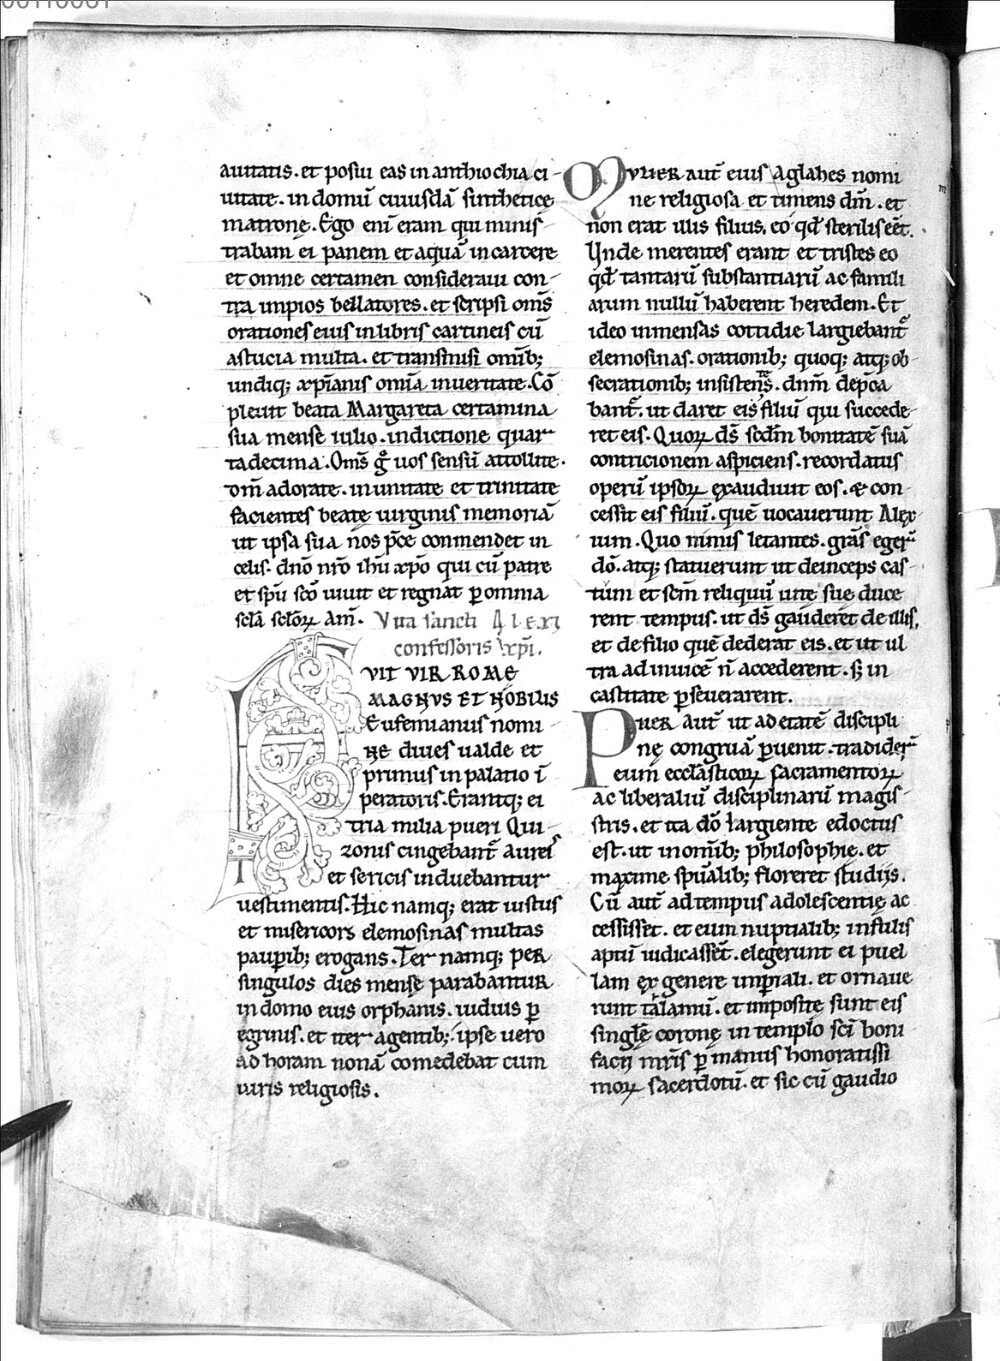 auitatis. et posui eas in anthiochia ci-
uitate. in domū cuiusdā sinthetice
matronę. Ego eni eram qui minis-
trabam ei panem et aquā in carcere
et omne certamen consideraui con-
tra impios bellatores. et scripsi om̄s
orationes eius in libris cartineis cū
astucia multa. et transmisi om̄ib;
undiq; xp̄ianis omīa in ueritate. Cō
pleuit beata Margareta certamina
sua mense iulio. indictione quar-
tadecima. Om̄s g̊ uos sensū attollite.
dm̄ adorate. in unitate et trinitate
facientes beatę uirginis memoriā
ut ipsa sua nos p̄ce conmendet in
celis. dn̄o nr̄o ih̄u xp̄o qui cū patre
et sp̄u sc̄o uiuit et regnat p omnia
sc̄la sc̄loꝝ am̄. Vita sancti Alexi
confessoris xp̄i.
FVIT VIR ROMĘ
MAGNVS ET NOBILIS
Eufemianus nomi-
ne diues ualde et
primus in palatio ī
peratoris. Erantq; ei
tria milia pueri Qui
zonis cingebant̄ aureis
et sericis induebantur
uestimentis. Hic namq; erat iustus
et misericors elemosinas multas
paupib; erogans. Ter namq; per
singulos dies mense parabantur
in domo eius orphanis. uiduis p
egrinis. et iter agentib; ipse uero
ad horam nonā comedebat cum
uiris religiosis.
Mvlier aut̄ eius Aglahes nomi
ne religiosa et timens dm̄. et
non erat illis filius. eo qd̄ sterilis eēt.
Unde merentes erant et tristes eo
qd̄ tantarū substantiarū ac famili
arum nullū haberent heredem. Et
ideo inmensas cottidie largiebant̄
elemosinas. orationib; quoq; atq; ob-
secrationib; insistens̄. dnm̄ dep̄ca
bant̄. ut daret eis filiū qui succede
ret eis. Quoꝝ ds̄ scdm̄ bonitatē suā
contricionem aspiciens. recordatus
operū ipsoꝝ exaudiuit eos. & con-
cessit eis filiū. quē uocauerunt Alex
ium. Quo nimis letantes. grās eger̄
dō. atq; statuerunt ut deinceps cas-
tum et sc̄m reliquū uitę suę duce
rent tempus. ut ds̄ gauderet de illis,
et de filio quē dederat eis. et ut ul
tra ad inuicē n̄ accederent. s; in
castitate p̄seuerarent.
Puer aut̄ ut ad etatē discipli
nę congruā puenit. tradider̄
eum ecclasticoꝝ sacramentoꝝ
ac liberaliū disciplinarū magis-
stris. et ita dō largiente edoctus
est. ut in om̄ib; philosophię. et
maxime sp̄ualib; floreret studiis.
Cū aut̄ ad tempus adolescentię ac
cessisset. et eum nuptialib; infulis
aptū iudicasset̄. elegerunt ei puel
lam ex genere imp̄iali. et ornaue
runt talamū. et imposite sunt eis
singlę coronę in templo sc̄i boni
facii mr̄is p manus honoratissi
moꝝ sacerdotū. et sic cū gaudio